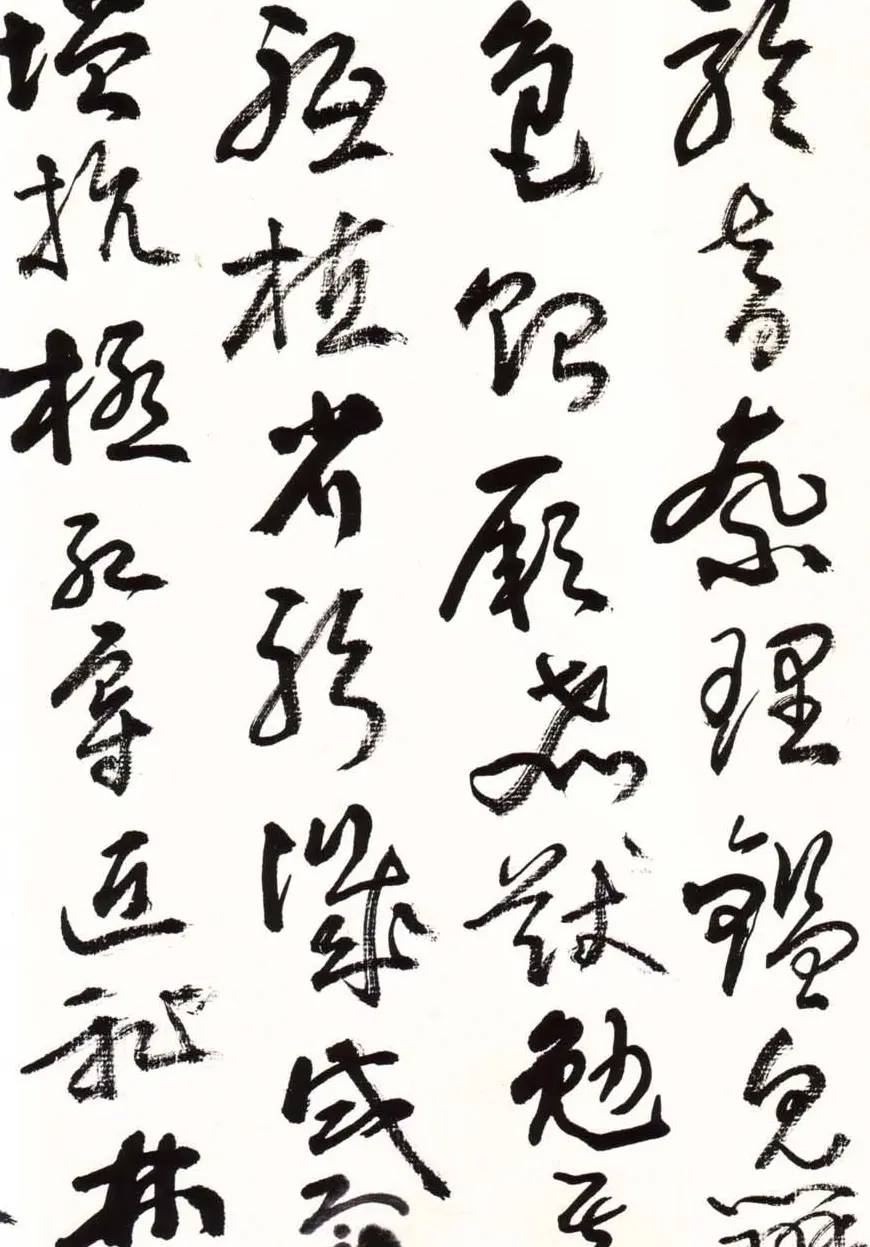 聆音察理鑑皃辨
色貽厥嘉猷勉其
祗植省躬譏誡寵
增抗極殆辱近恥林